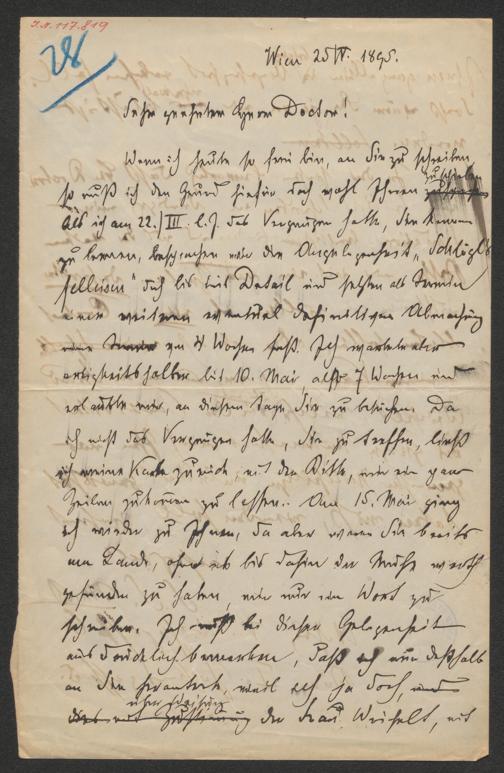 I.N. 117.819
28
Wien 25/V. 1895.
Sehr geehrter Herr Doctor!
Wenn ich heute so frei bin, an Sie zu schreiben,
so muß ich den Grund hiefür doch wohl Ihnen zuschieben
Als ich am 22./III. l. J. das Vergnügen hatte, Sie kennen
zu lernen, besprachen wir die Angelegenheit „Schlögl's
" doch bis ins Detail und setzten als Termin
einer weiteren eventuel definitiven Abmachung
4 Wochen fest. Ich wartete aber
artigkeitshalber bis 10. Mai also 7 Wochen und
erlaubte mir, an diesem Tage Sie zu besuchen. Da
ich nicht das Vergnügen hatte, Sie zu treffen, ließ
ich meine Karte zurück, mit der Bitte, mir ein paar
Zeilen zukommen zu lassen. Am 15. Mai ging
ich wieder zu Ihnen, da aber waren Sie bereits
am Lande, ohne es bis dahin der Mühe werth
gefunden zu haben, mir nur ein Wort zu
schreiben. Ich muß bei dieser Gelegenheit
ausdrücklich bemerken, daß ich nur deßhalb
an Sie herantrat, weil ich ja doch,
der Frau, mit